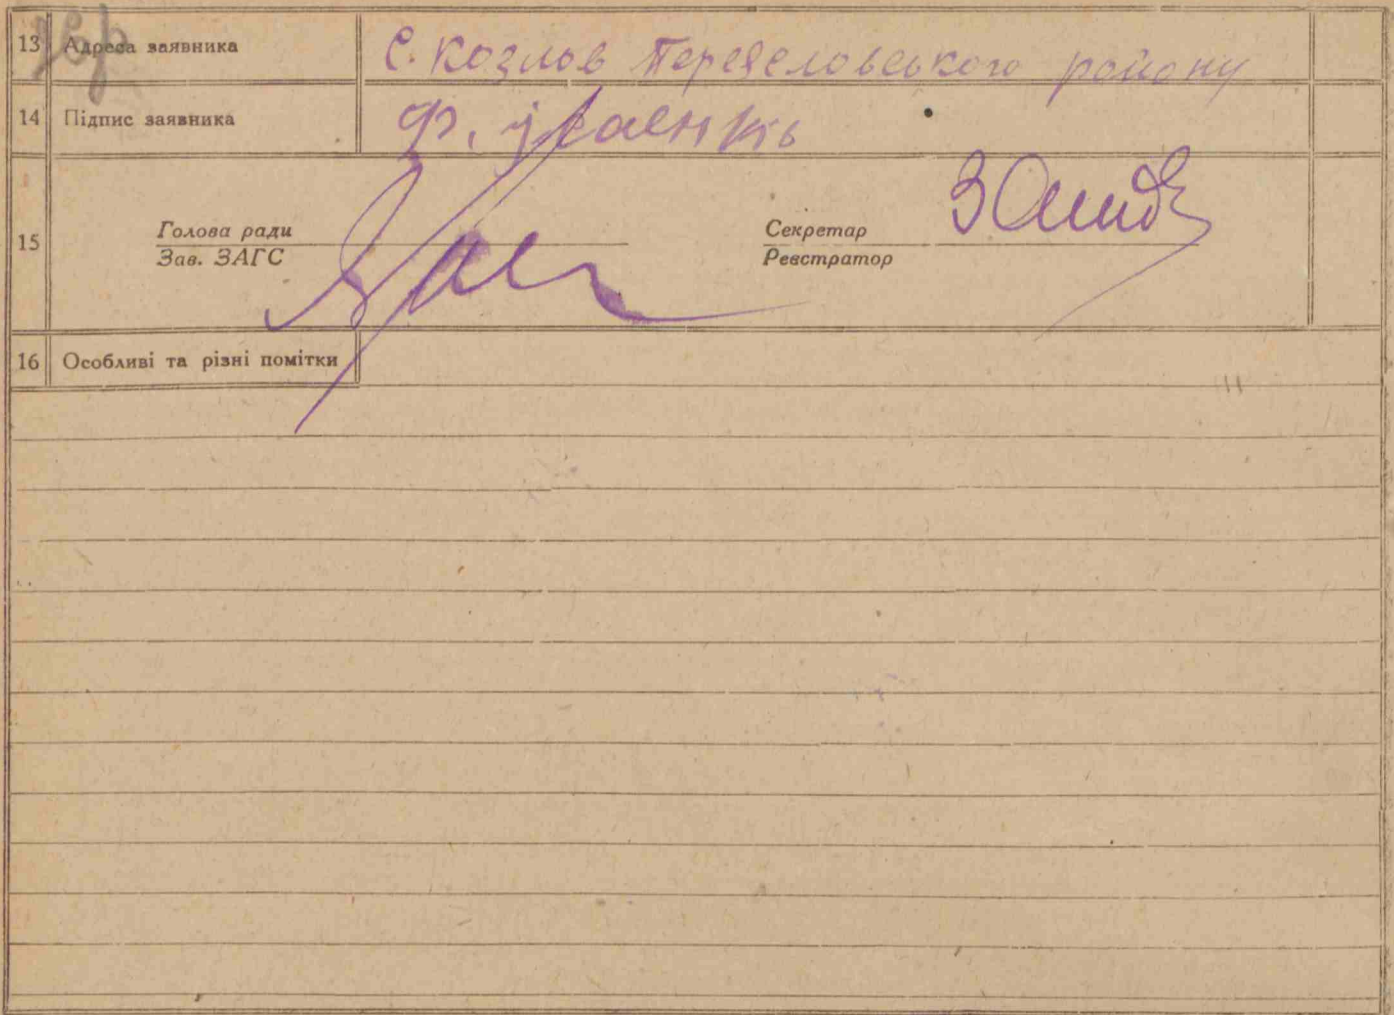 13 Адреса заявника С. Козлов Переяславського району
14 Підпис заявника Ф.
15 Голова ради Секретар
Зав. ЗАГС Реєстратор
16 Особливі та різні помітки